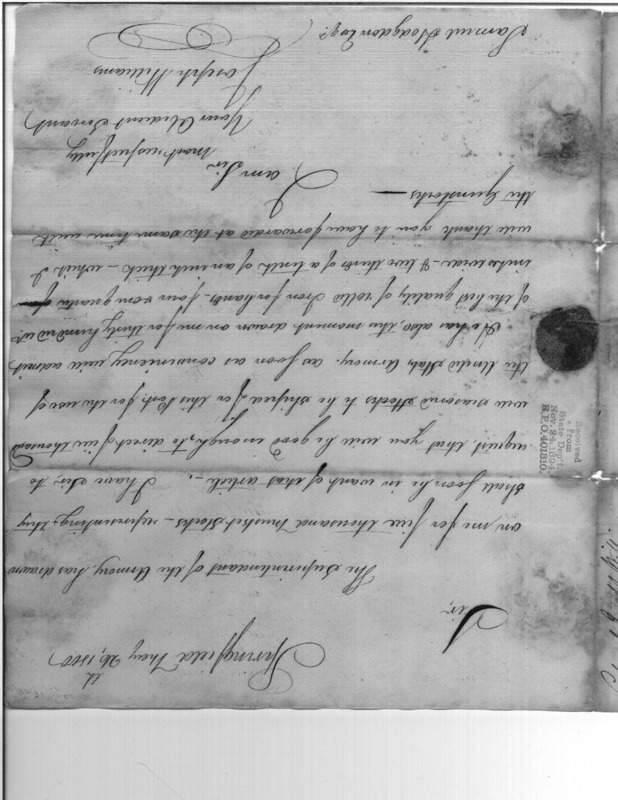 Springfield May 26th, 1800
Sir,
The Superintendant of the Armory, has drawn
on me for five thousand Musket Stocks - representing, they
shall soon be in want of that article. - I have Sir, to
request that you will be good enough, to direct five thousand
well seasoned Stocks to be shiped for this Post, for the use of
the United States Armory. as soon as conveniency will admit.
He has also, this moment drawn on me for thirty hundred wt.
of the best quality of rolled Iron for bands - four quarter of
inch wide - & two thirds of a tenth of an inch thick - which I
will thank you to have forwarded at the same time with
the Gunstocks -
I am Sir
most respectfully
Your Obedient Servant
Joseph Williams
Samuel Hodgdon Esqr.
Received
from
State Dep't,
Nov. 24, 1894.
R.P.O. 401810.